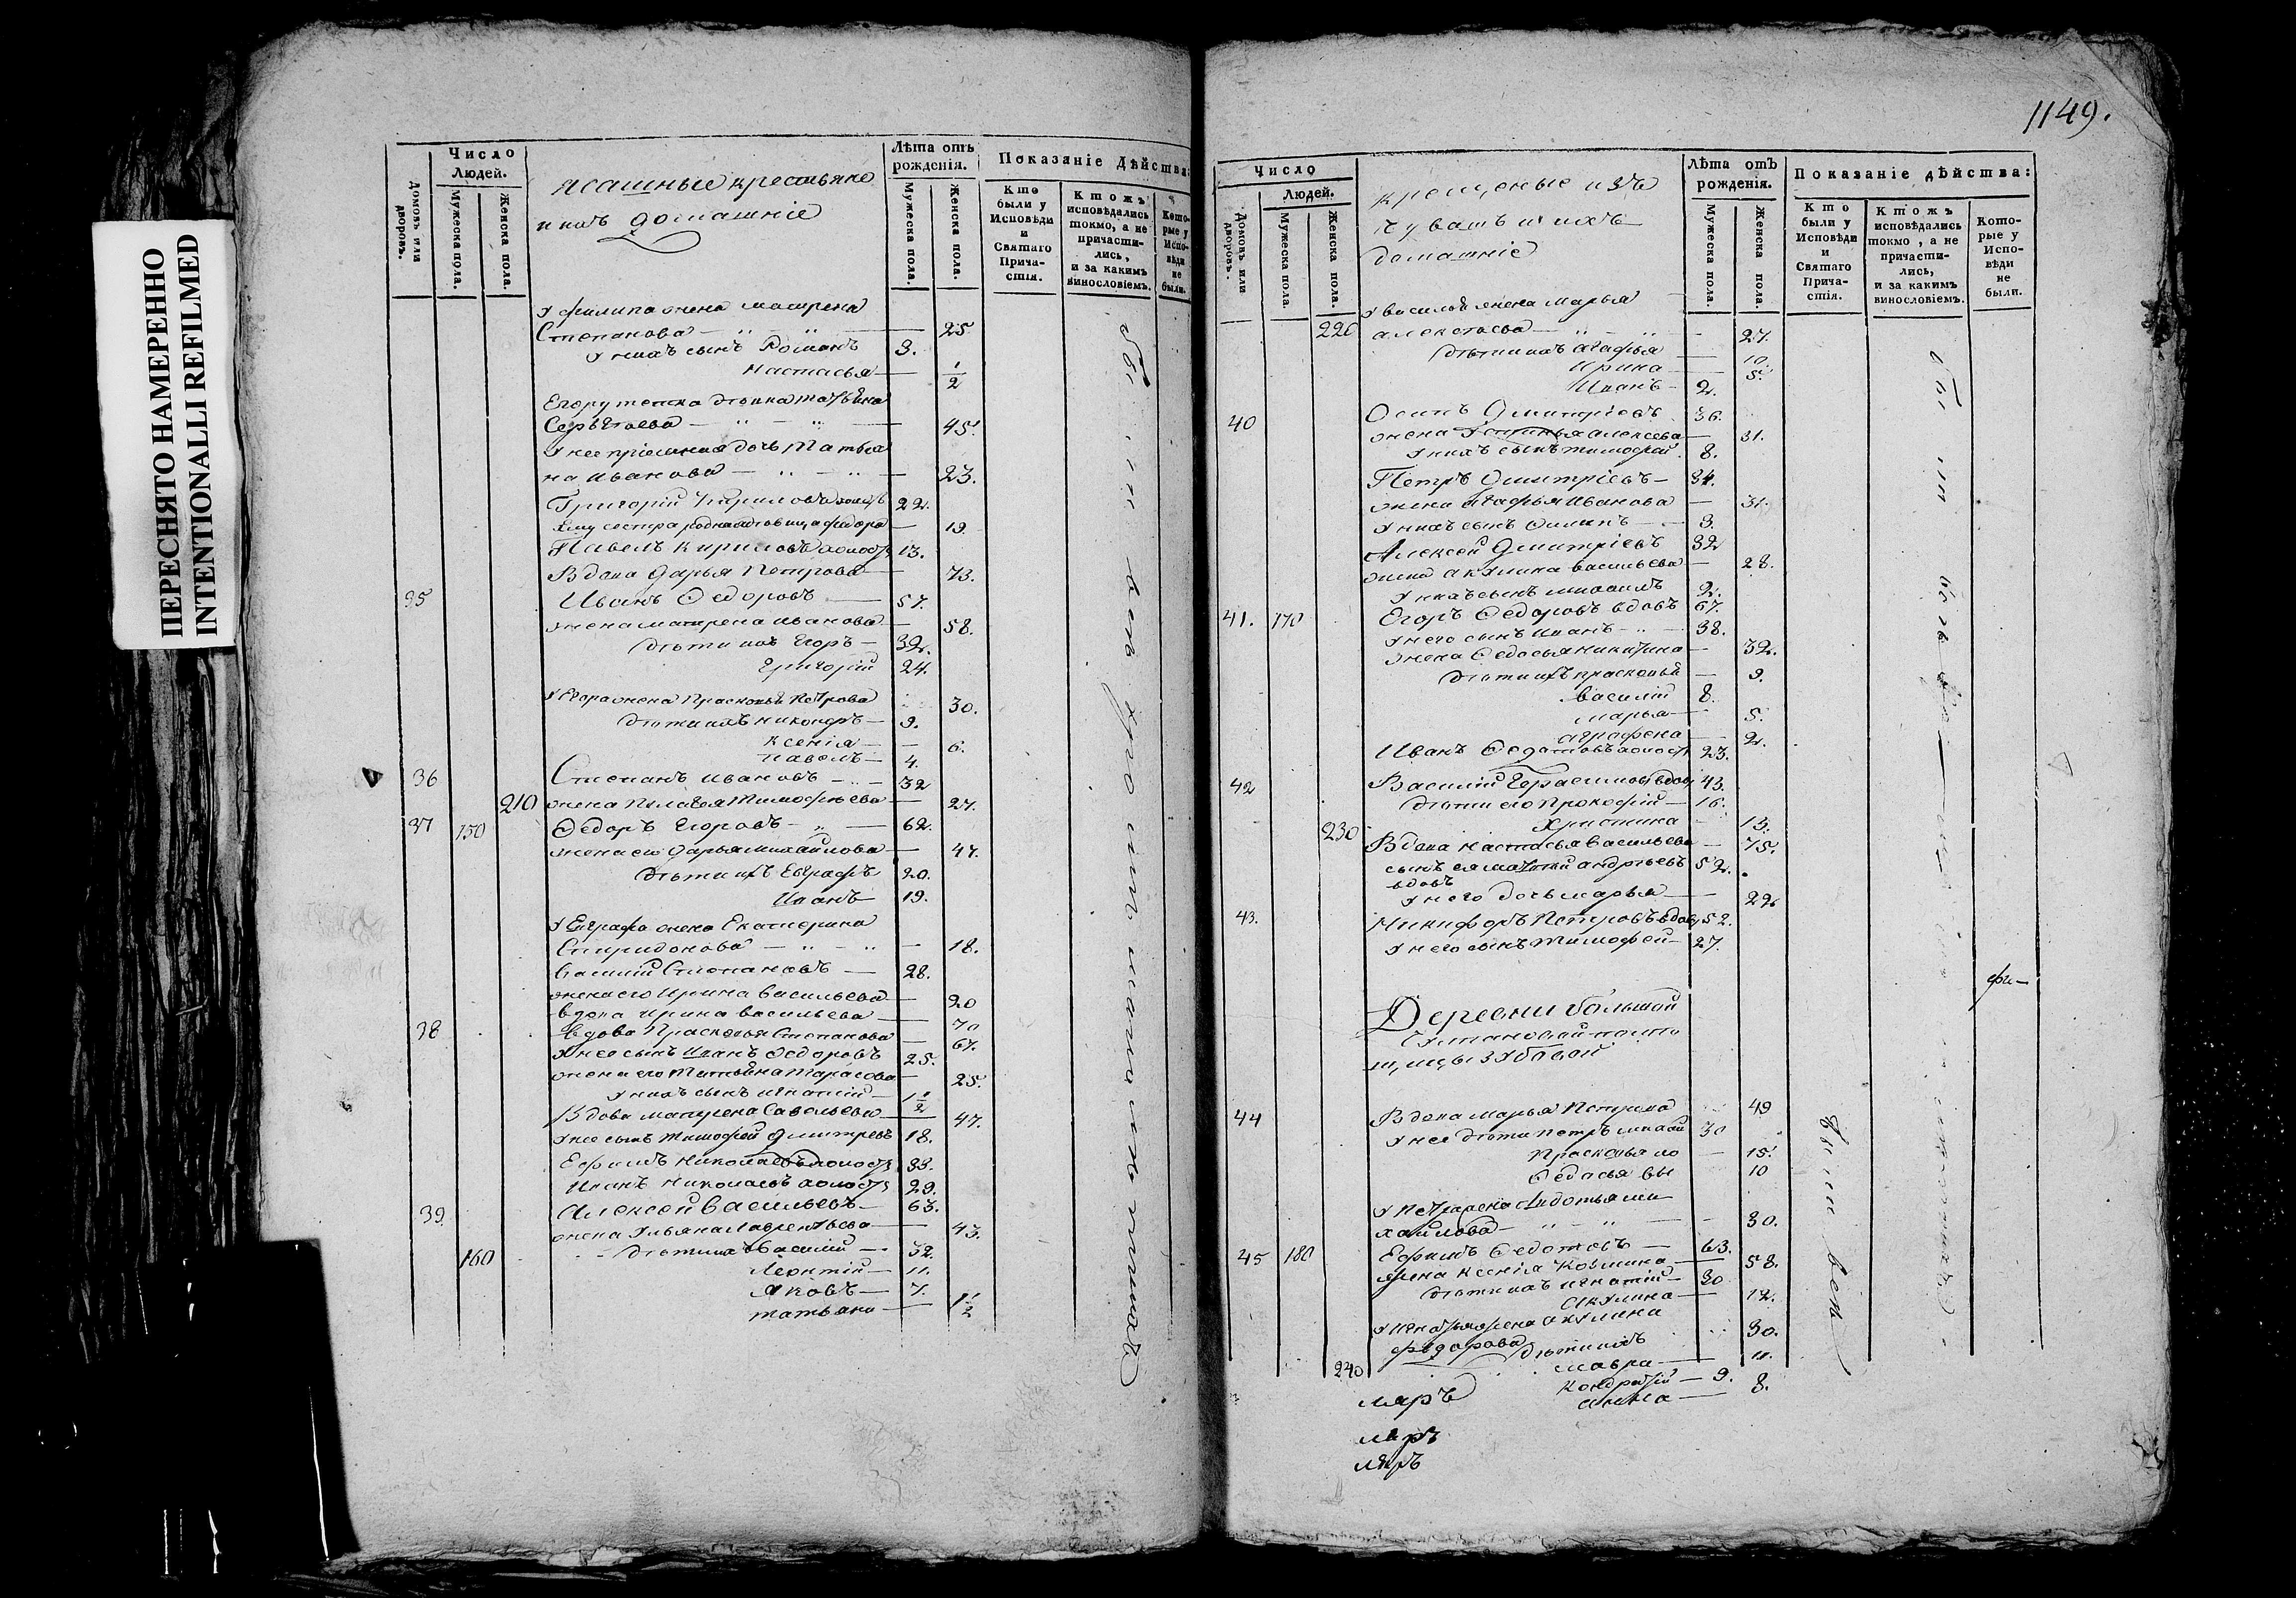 ПЕРЕСНЯТО НАМЕРЕННО
INTENTIONALLI REFILMED
Число
Людей.
Домовъ или дворовъ.
Мужеска пола.
Женска пола.
ясашные крестьяне
и ихъ домашніе
Лѣта отъ
рожденія.
Мужеска пола.
Женска пола.
Показаніе дѣйства:
Кто
были у
Исповѣди
и
Святаго
Прича-
стія.
Ктожъ
исповѣдались
токмо, а не
причасти-
лись,
и за какимъ
винословіемъ.
Кото-
рые у
Испо-
вѣди
не
были.
У филипа жена матрена
Степанова 25
У нихъ сынъ Романъ 3.
Настасья 1/2
Егору тетка девка татьяна
Сергѣева 45.
У нее приемная дочь Татья
на Иванова 23.
Григорій Кириловъ холостъ 22.
Ему сестра родная девица федора 19
Павелъ Кириловъ холостъ 13.
Вдова Дарья Петрова 73.
35 Иванъ Федоровъ 57.
жена матрена Иванова 58.
Дѣти ихъ Егоръ 32.
Григорій 24.
У Егора жена Прасковья Петрова 30.
Дѣти ихъ никаноръ 9.
Ксенія 6.
Павелъ 4.
36 Степанъ Ивановъ 32
210 жена Пелагея Тимофѣева 27.
37 150 Федоръ Егоровъ 62.
жена его Дарья Михайлова 47.
Дѣти ихъ Евграфъ 20.
Иванъ 19.
У Евграфа жена Екатерина
Спиридонова 18.
Василій Степановъ 28.
жена его Ирина Васильева 20
вдова Ирина васильева 70
38 Вдова Прасковья Степанова 67.
У нее сынъ Иванъ Федоровъ 25.
жена его Татьяна Тарасова 25.
У нихъ сынъ игнатій 1 1/2
Вдова матрена Савельева 47.
У нее сынъ Тимофей Дмитревъ 18.
Ефимъ Николаевъ холостъ 33.
Иванъ Николаевъ холостъ 29.
39. Алексей Васильевъ 63.
жена Ульяна Лаврентьева 43.
160 Дѣти ихъ Василій 32.
Леонтій 11.
Яковъ 7.
татьяна 1 1/2
1149.
Число
Людей.
Домовъ или дворовъ.
Мужеска пола.
Женска пола.
крещеные изъ
чувашъ и ихъ
домашніе
Лѣта отъ
рожденія.
Мужеска пола.
Женска пола.
Показаніе дѣйства:
Кто
были у
Исповѣди
и
Святаго
Прича-
стія.
Ктожъ
исповѣдались
токмо, а не
причасти-
лись,
и за какимъ
винословіемъ.
Кото-
рые у
Испо-
вѣди
не
были.
У василья жена Марья
220 алексѣева 27.
Дѣти ихъ агафья 10.
Ирина 5.
Иванъ 2.
40 Осипъ Дмитріевъ 36.
жена Устинья алексева 31.
У нихъ сынъ тимофей 8.
Петръ Дмитріевъ 34.
жена агафья Иванова 31.
У нихъ сынъ филипъ 3.
Алексей Дмитріевъ 32
жена акулина васильева 28.
У нихъ сынъ михаилъ 2.
41. 170 Егоръ Федоровъ вдовъ 67.
У него сынъ Иванъ 38.
жена Федосья никитина 32.
Дѣти ихъ прасковья 9.
Василій 8.
Марья 5.
аграфена 2.
Иванъ Федотовъ холостъ 23.
42 Василій Герасимовъ вдовъ 43.
Дѣти его Прокофій 16.
230 Христина 13.
Вдова Настасья Васильева 75.
сынъ ея матвей андреевъ 52.
вдовъ
У него дочь марья 22
43. Никифоръ Петровъ вдовъ 52.
У него сынъ Тимофей 27.
Деревни большой
44 Вдова марья Петрова 49
У нее дѣти петръ 30
Прасковья 15.
Федосья 10
У петра жена Авдотья ми
хайлова 30.
45 180 Ефимъ Федотовъ 63.
жена Ксенія Козмина 58.
Дѣти ихъ игнатій 30
акулина 12.
У игнатья жена акулина
федорова 30.
240 Дѣти ихъ
мавра 11.
Кондратій 9.
анна 8.